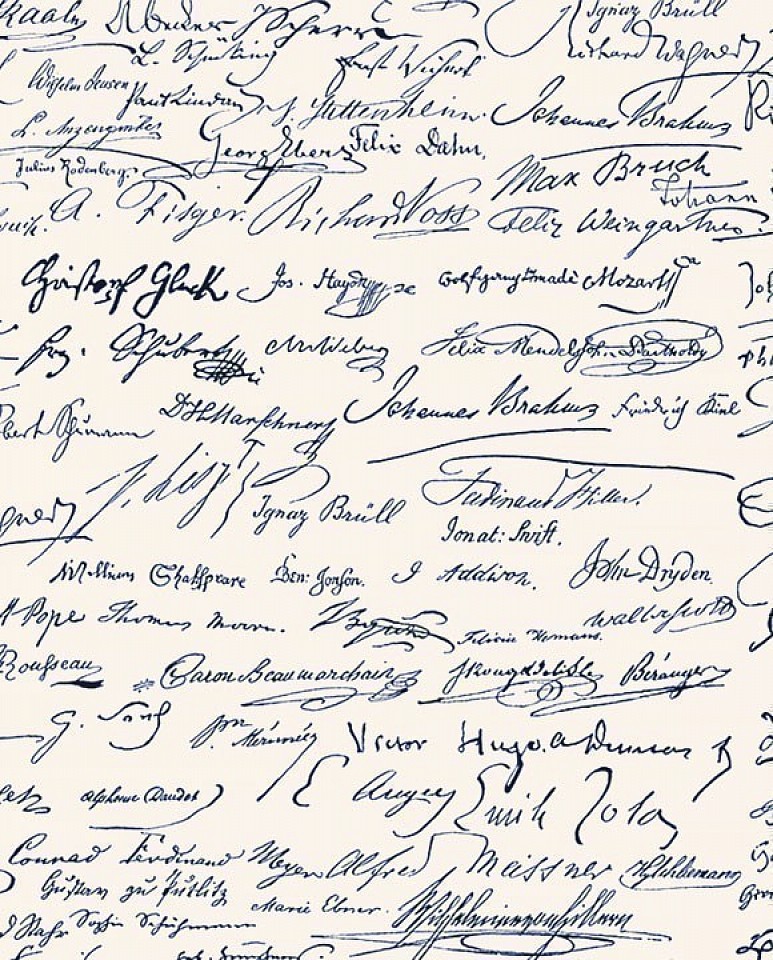 Ignaz Brüll
Richard Wagner
L. Schücking Ernst Wichert
Wilhelm Jensen Paul Lindau J. Stettenheim. Johannes Brahms
L. Anzengruber Georg Ebers Felix Dahn.
Julius Rodenberg. Max Bruch
Johann
A. Fitger. Richard Voss Felix Weingartner.
Christoph Gluck Jos. Haydn Wolfgang Amadè Mozart
Frz. Schubert CMvWeber Felix Mendelssohn Bartholdy
bert Schumann DHMarschner Johannes Brahms Friedrich Kiel
F. Liszt Ignaz Brüll Ferdinand Hiller.
gner Jonat: Swift.
William Shakspeare Ben: Jonson. J Addison. John Dryden.
A Pope Thomas Moore. Byron Felicia Hemans. Walter Scott
Rousseau Caron Beaumarchais Rouget de Lisle Béranger
G. Sand Pr Mérimée Victor Hugo. A Dumas
Alphonse Daudet Augier Emile Zola
Conrad Ferdinand Meyer Alfred Meissner
Gustav zu Putlitz Marie Ebner. Wilhelmine von Hillern
d Stahr Sofie Schuhmann